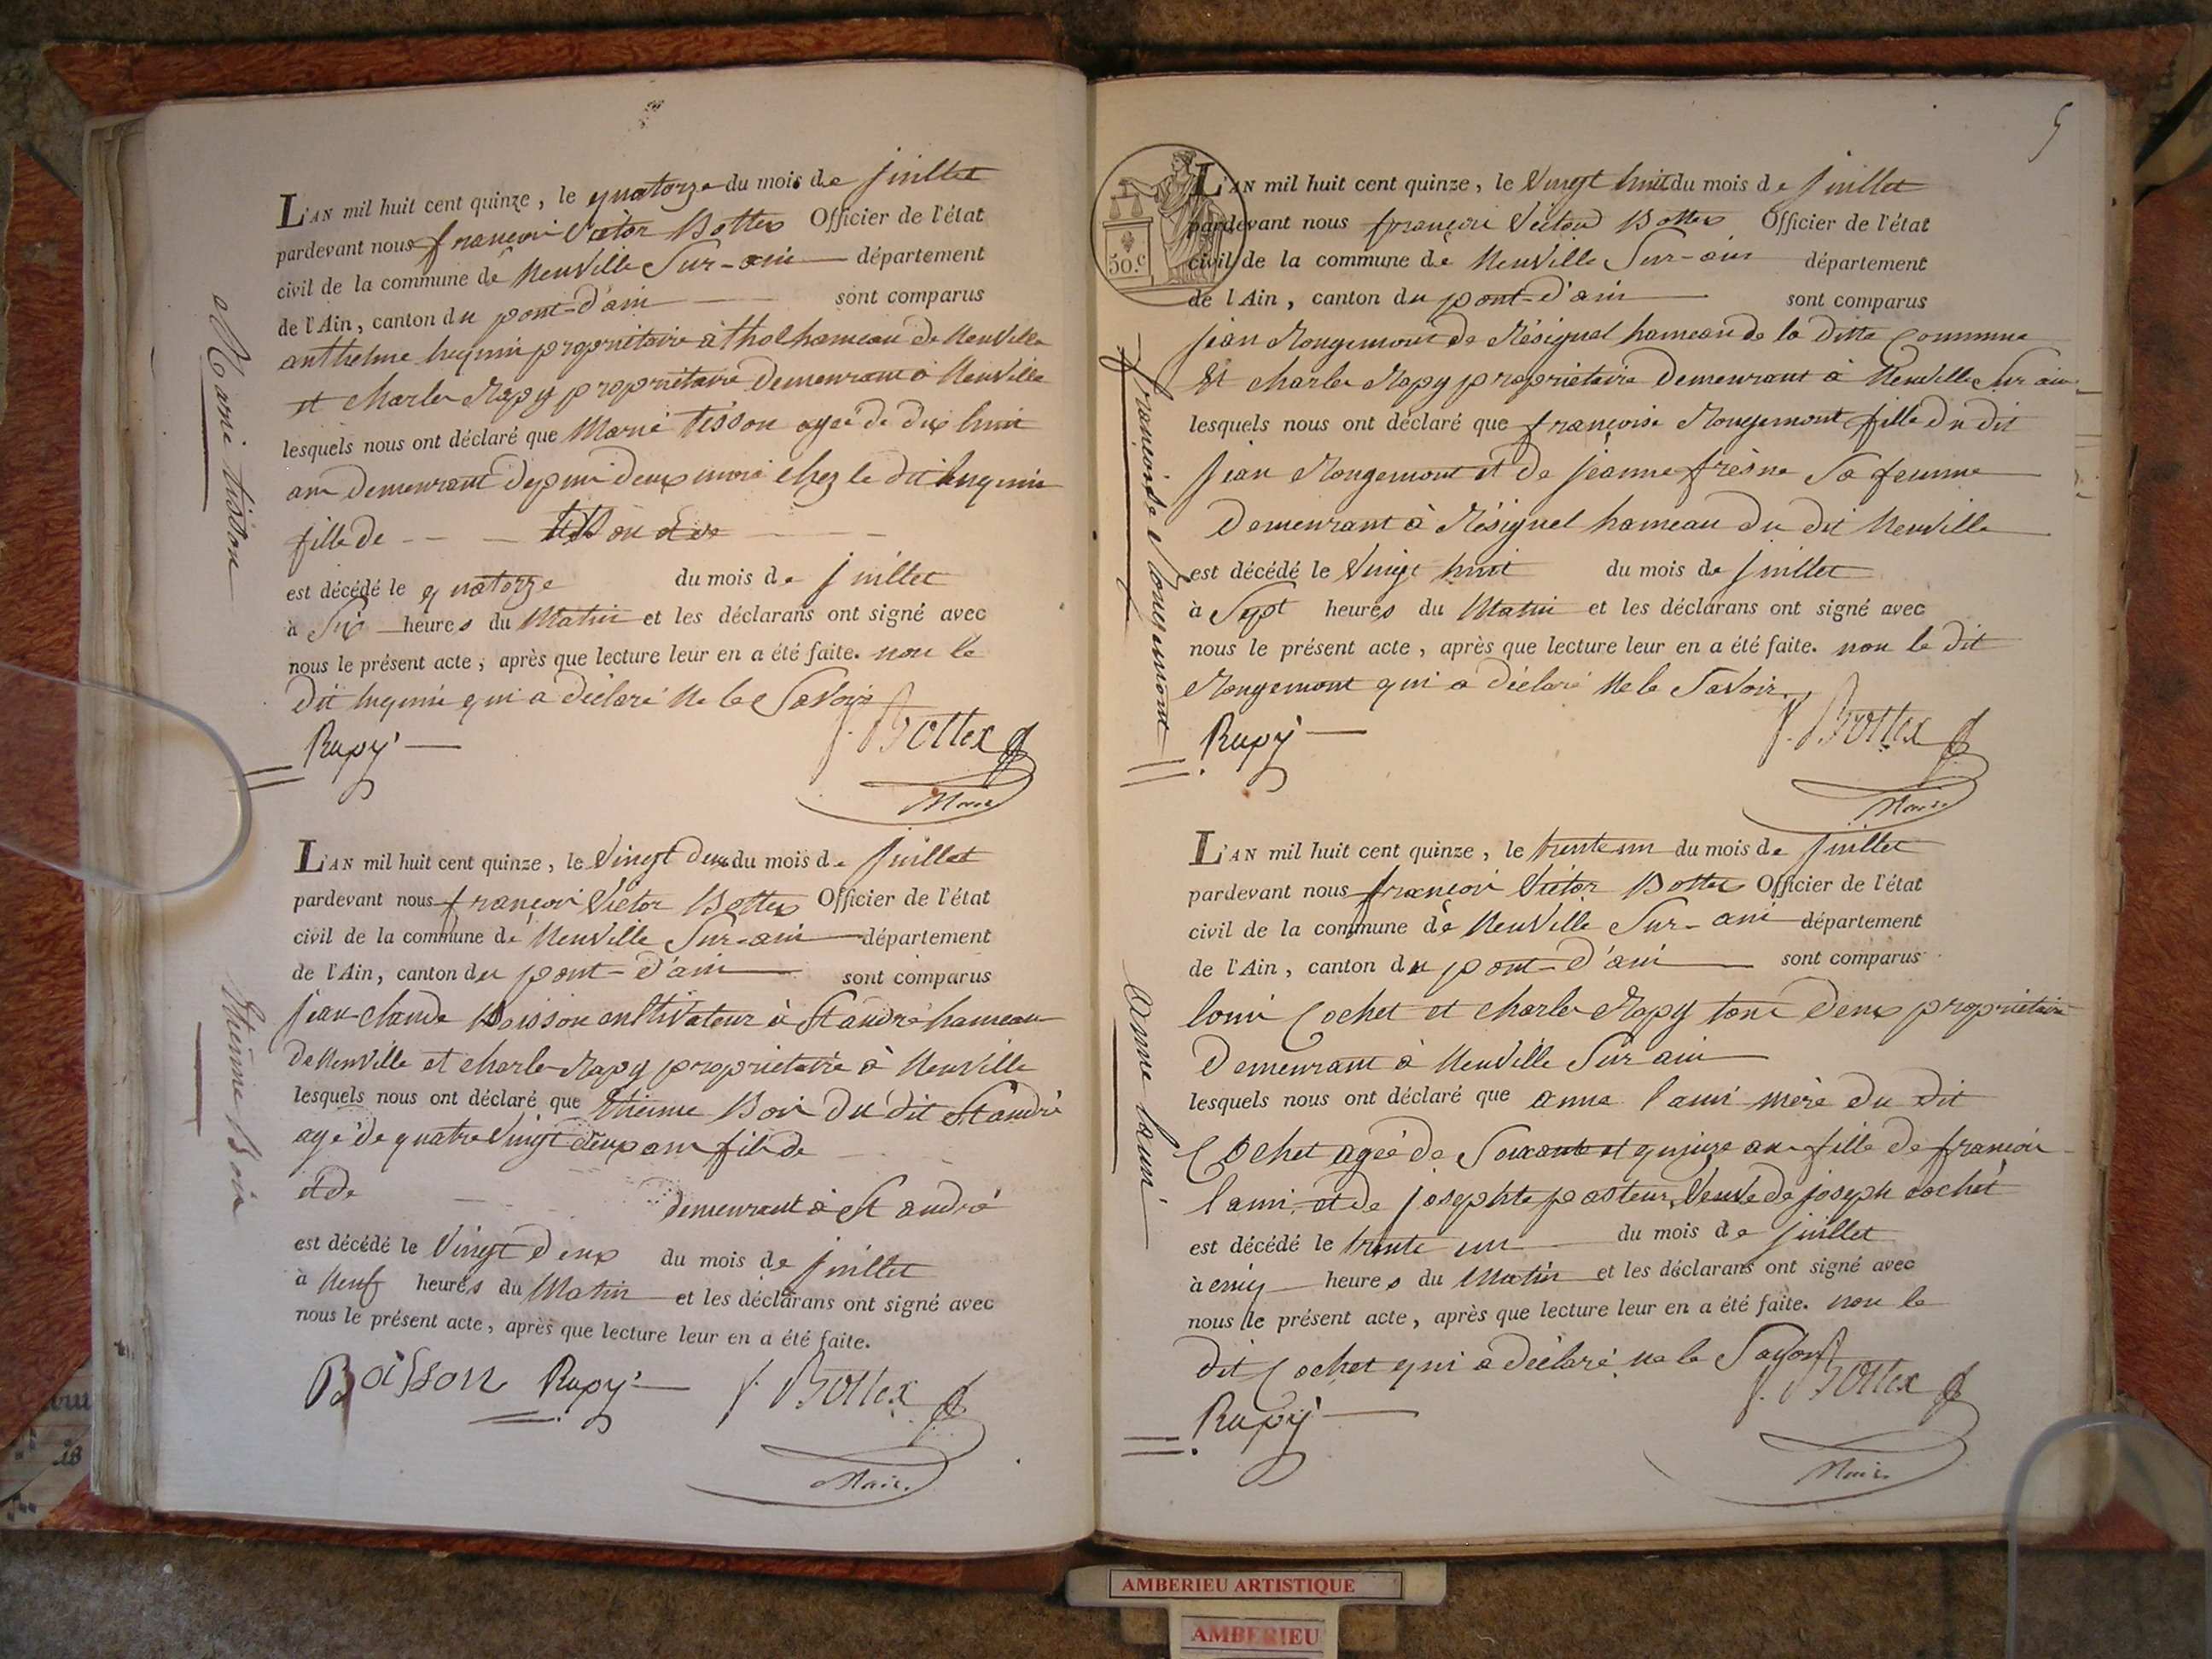 L'AN mil huit cent quinze, le quatorze du mois de juillet
pardevant nous françois Victor Bottex Officier de l'état
civil de la commune de Neuville Sur-ain département
de l'Ain, canton du pont-d'ain sont comparus
anthelme huguin propriétaire à thol hameau de Neuville
et charles Rapy propriétaire Demeurant à Neuville
lesquels nous ont déclaré que Marie tisson agée de dix huit
ans Demeurant Depuis deux mois chez le dit huguin
fille de
est décédé le quatorze du mois de juillet
à Six heures du Matin et les déclarans ont signé avec
nous le présent acte, après que lecture leur en a été faite. non le
Dit huguin qui a Déclaré Ne le Savoir
Rapy F. Bottex
Maire
Marie tisson
L'AN mil huit cent quinze, le Vingt deux du mois de juillet
pardevant nous françois Victor Bottex Officier de l'état
civil de la commune de Neuville Sur-ain département
de l'Ain, canton du pont-d'ain sont comparus
jean-claude Boisson cultivateur à St andré hameau
De Neuville et charles Rapy propriétaire à Neuville
lesquels nous ont déclaré que Etienne Bois Du dit St andré
agé de quatre Vingt deux ans fils de
et de demeurant à St andré
est décédé le Vingt deux du mois de juillet
à Neuf heures du Matin et les déclarans ont signé avec
nous le présent acte, après que lecture leur en a été faite.
Boisson Rapy F. Bottex
Maire
Etienne Bois
5
50.c
L'AN mil huit cent quinze, le Vingt huit du mois de juillet
pardevant nous françois Victor Bottex Officier de l'état
civil de la commune de Neuville Sur-ain département
de l'Ain, canton du pont-d'ain sont comparus
jean Rougemont de Résignel hameau de la ditte Commune
Et charles Rapy propriétaire Demeurant à Neuville Sur ain
lesquels nous ont déclaré que françoise Rougemont fille Du dit
jean Rougemont et de jeanne frèsne Sa femme
Demeurant à Résignel hameau du dit Neuville
est décédé le Vingt huit du mois de juillet
à Sept heures du Matin et les déclarans ont signé avec
nous le présent acte, après que lecture leur en a été faite. non le Dit
Rougemont qui a Déclaré Ne le Savoir
Rapy F. Bottex
Maire
françoise Rougemont
L'AN mil huit cent quinze, le trente un du mois de juillet
pardevant nous françois Victor Bottex Officier de l'état
civil de la commune de Neuville Sur-ain département
de l'Ain, canton du pont-d'ain sont comparus
louis Cochet et charles Rapy tous Deux propriétaires
Demeurant à Neuville Sur ain
lesquels nous ont déclaré que anne lami mère du dit
Cochet agée de Soixante et quinze ans fille de françois
lami et de josephte pasteur, Veuve de joseph cochet
est décédé le trente un du mois de juillet
à cinq heures du Matin et les déclarans ont signé avec
nous le présent acte, après que lecture leur en a été faite. non le
Dit Cochet qui a Déclaré ne le Savoir
Rapy F. Bottex
Maire
anne lami
AMBERIEU ARTISTIQUE
AMBERIEU